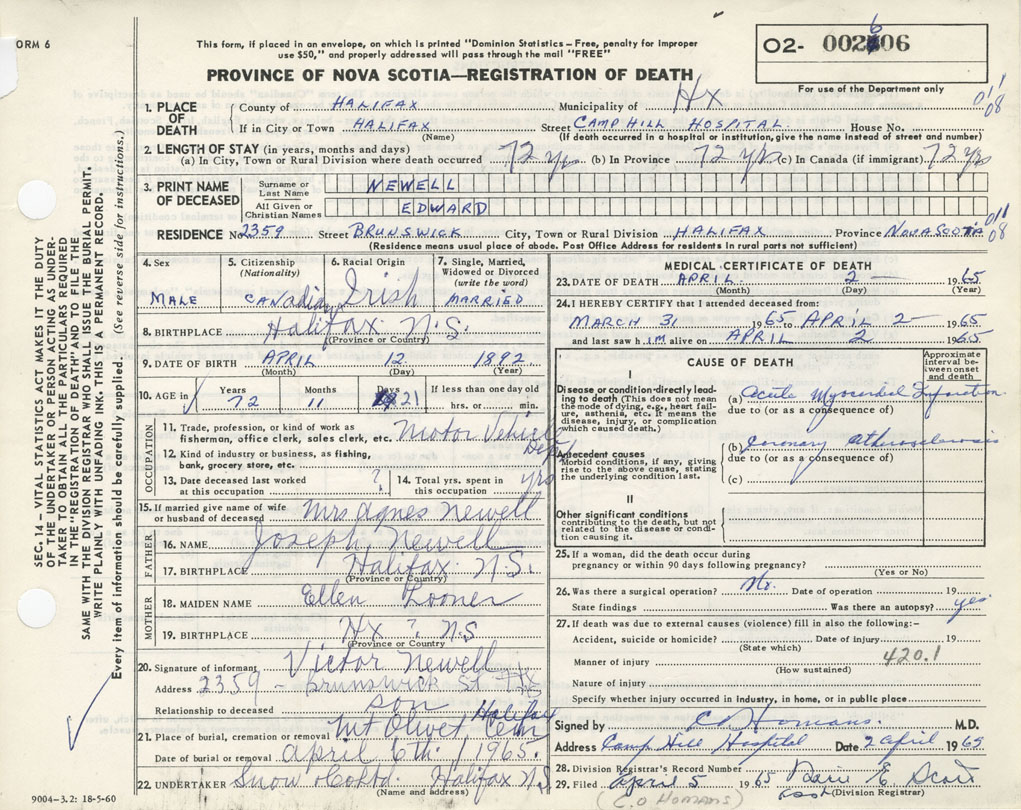 ORM 6
This form, if placed in an envelope, on which is printed "Dominion Statistics – Free, penalty for improper
use $50," and properly addressed will pass through the mail "FREE"
PROVINCE OF NOVA SCOTIA—REGISTRATION OF DEATH
O2- 002606
6
For use of the Department only
1. PLACE OF DEATH { County of HALIFAX Municipality of HX 011/08
If in City or Town HALIFAX Street CAMP HILL HOSPITAL. House No.
(Name) (If death occurred in a hospital or institution, give the name instead of street and number)
2. LENGTH OF STAY (in years, months and days)
(a) In City, Town or Rural Division where death occurred 72 yrs (b) In Province 72 yrs (c) In Canada (if immigrant) 72 yrs
3. PRINT NAME OF DECEASED Surname or Last Name NEWELL
All Given or Christian Names EDWARD
RESIDENCE No. 2359 Street BRUNSWICK City, Town or Rural Division HALIFAX Province NOVA SCOTIA 011/08
(Residence means usual place of abode. Post Office Address for residents in rural parts not sufficient)
4. Sex MALE
5. Citizenship (Nationality) CANADIAN
6. Racial Origin Irish
7. Single, Married, Widowed or Divorced (write the word) MARRIED
8. BIRTHPLACE Halifax N.S.
(Province or Country)
9. DATE OF BIRTH APRIL 12 1892
(Month) (Day) (Year)
10. AGE in Years 72 Months 11 Days 21 If less than one day old hrs. or min.
OCCUPATION
11. Trade, profession, or kind of work as fisherman, office clerk, sales clerk, etc. Motor Vehicle
Dep
12. Kind of industry or business, as fishing, bank, grocery store, etc.
13. Date deceased last worked at this occupation ?
14. Total yrs. spent in this occupation yrs
15. If married give name of wife or husband of deceased Mrs Agnes Newell
FATHER
16. NAME Joseph Newell
17. BIRTHPLACE Halifax N.S.
(Province or Country)
MOTHER
18. MAIDEN NAME Ellen
19. BIRTHPLACE Hx ? N.S
(Province or Country)
20. Signature of informant Victor Newell
Address 2359 - Brunswick St Hx
Relationship to deceased son
21. Place of burial, cremation or removal Mt Olivet Cem Halifax
Date of burial or removal April 6th. 1965.
22. UNDERTAKER Snow Halifax N.S
(Name and address)
MEDICAL CERTIFICATE OF DEATH
23. DATE OF DEATH APRIL 2 — 1965
(Month) (Day) (Year)
24. I HEREBY CERTIFY that I attended deceased from:
MARCH 31 1965 to APRIL 2 - 1965
and last saw h IM alive on APRIL 2 1965
CAUSE OF DEATH
Approximate interval between onset and death
I
Disease or condition directly leading to death (This does not mean the mode of dying, e.g., heart failure, asthenia, etc. It means the disease, injury, or complication which caused death.)
(a) Acute Myocardial Infarction
due to (or as a consequence of)
Antecedent causes
Morbid conditions, if any, giving rise to the above cause, stating the underlying condition last.
(b) Coronary Atherosclerosis
due to (or as a consequence of)
(c)
II
Other significant conditions
contributing to the death, but not related to the disease or condition causing it.
25. If a woman, did the death occur during pregnancy or within 90 days following pregnancy?
(Yes or No)
26. Was there a surgical operation? No. Date of operation 19
State findings Was there an autopsy? yes
27. If death was due to external causes (violence) fill in also the following:-
Accident, suicide or homicide? Date of injury 19
(State which)
Manner of injury 420.1
(How sustained)
Nature of injury
Specify whether injury occurred in industry, in home, or in public place
Signed by C O Homans. M.D.
Address Camp Hill Hospital Date 2 April 1965
28. Division Registrar's Record Number
29. Filed April 5 1965
(Division Registrar)
(C.O HOMANS)
SEC. 14 – VITAL STATISTICS ACT MAKES IT THE DUTY
OF THE UNDERTAKER OR PERSON ACTING AS UNDER-
TAKER TO OBTAIN ALL THE PARTICULARS REQUIRED
IN THE "REGISTRATION OF DEATH" AND TO FILE THE
SAME WITH THE DIVISION REGISTRAR WHO SHALL ISSUE THE BURIAL PERMIT.
WRITE PLAINLY WITH UNFADING INK. THIS IS A PERMANENT RECORD.
Every item of information should be carefully supplied. (See reverse side for instructions.)
9004-3.2: 18-5-60